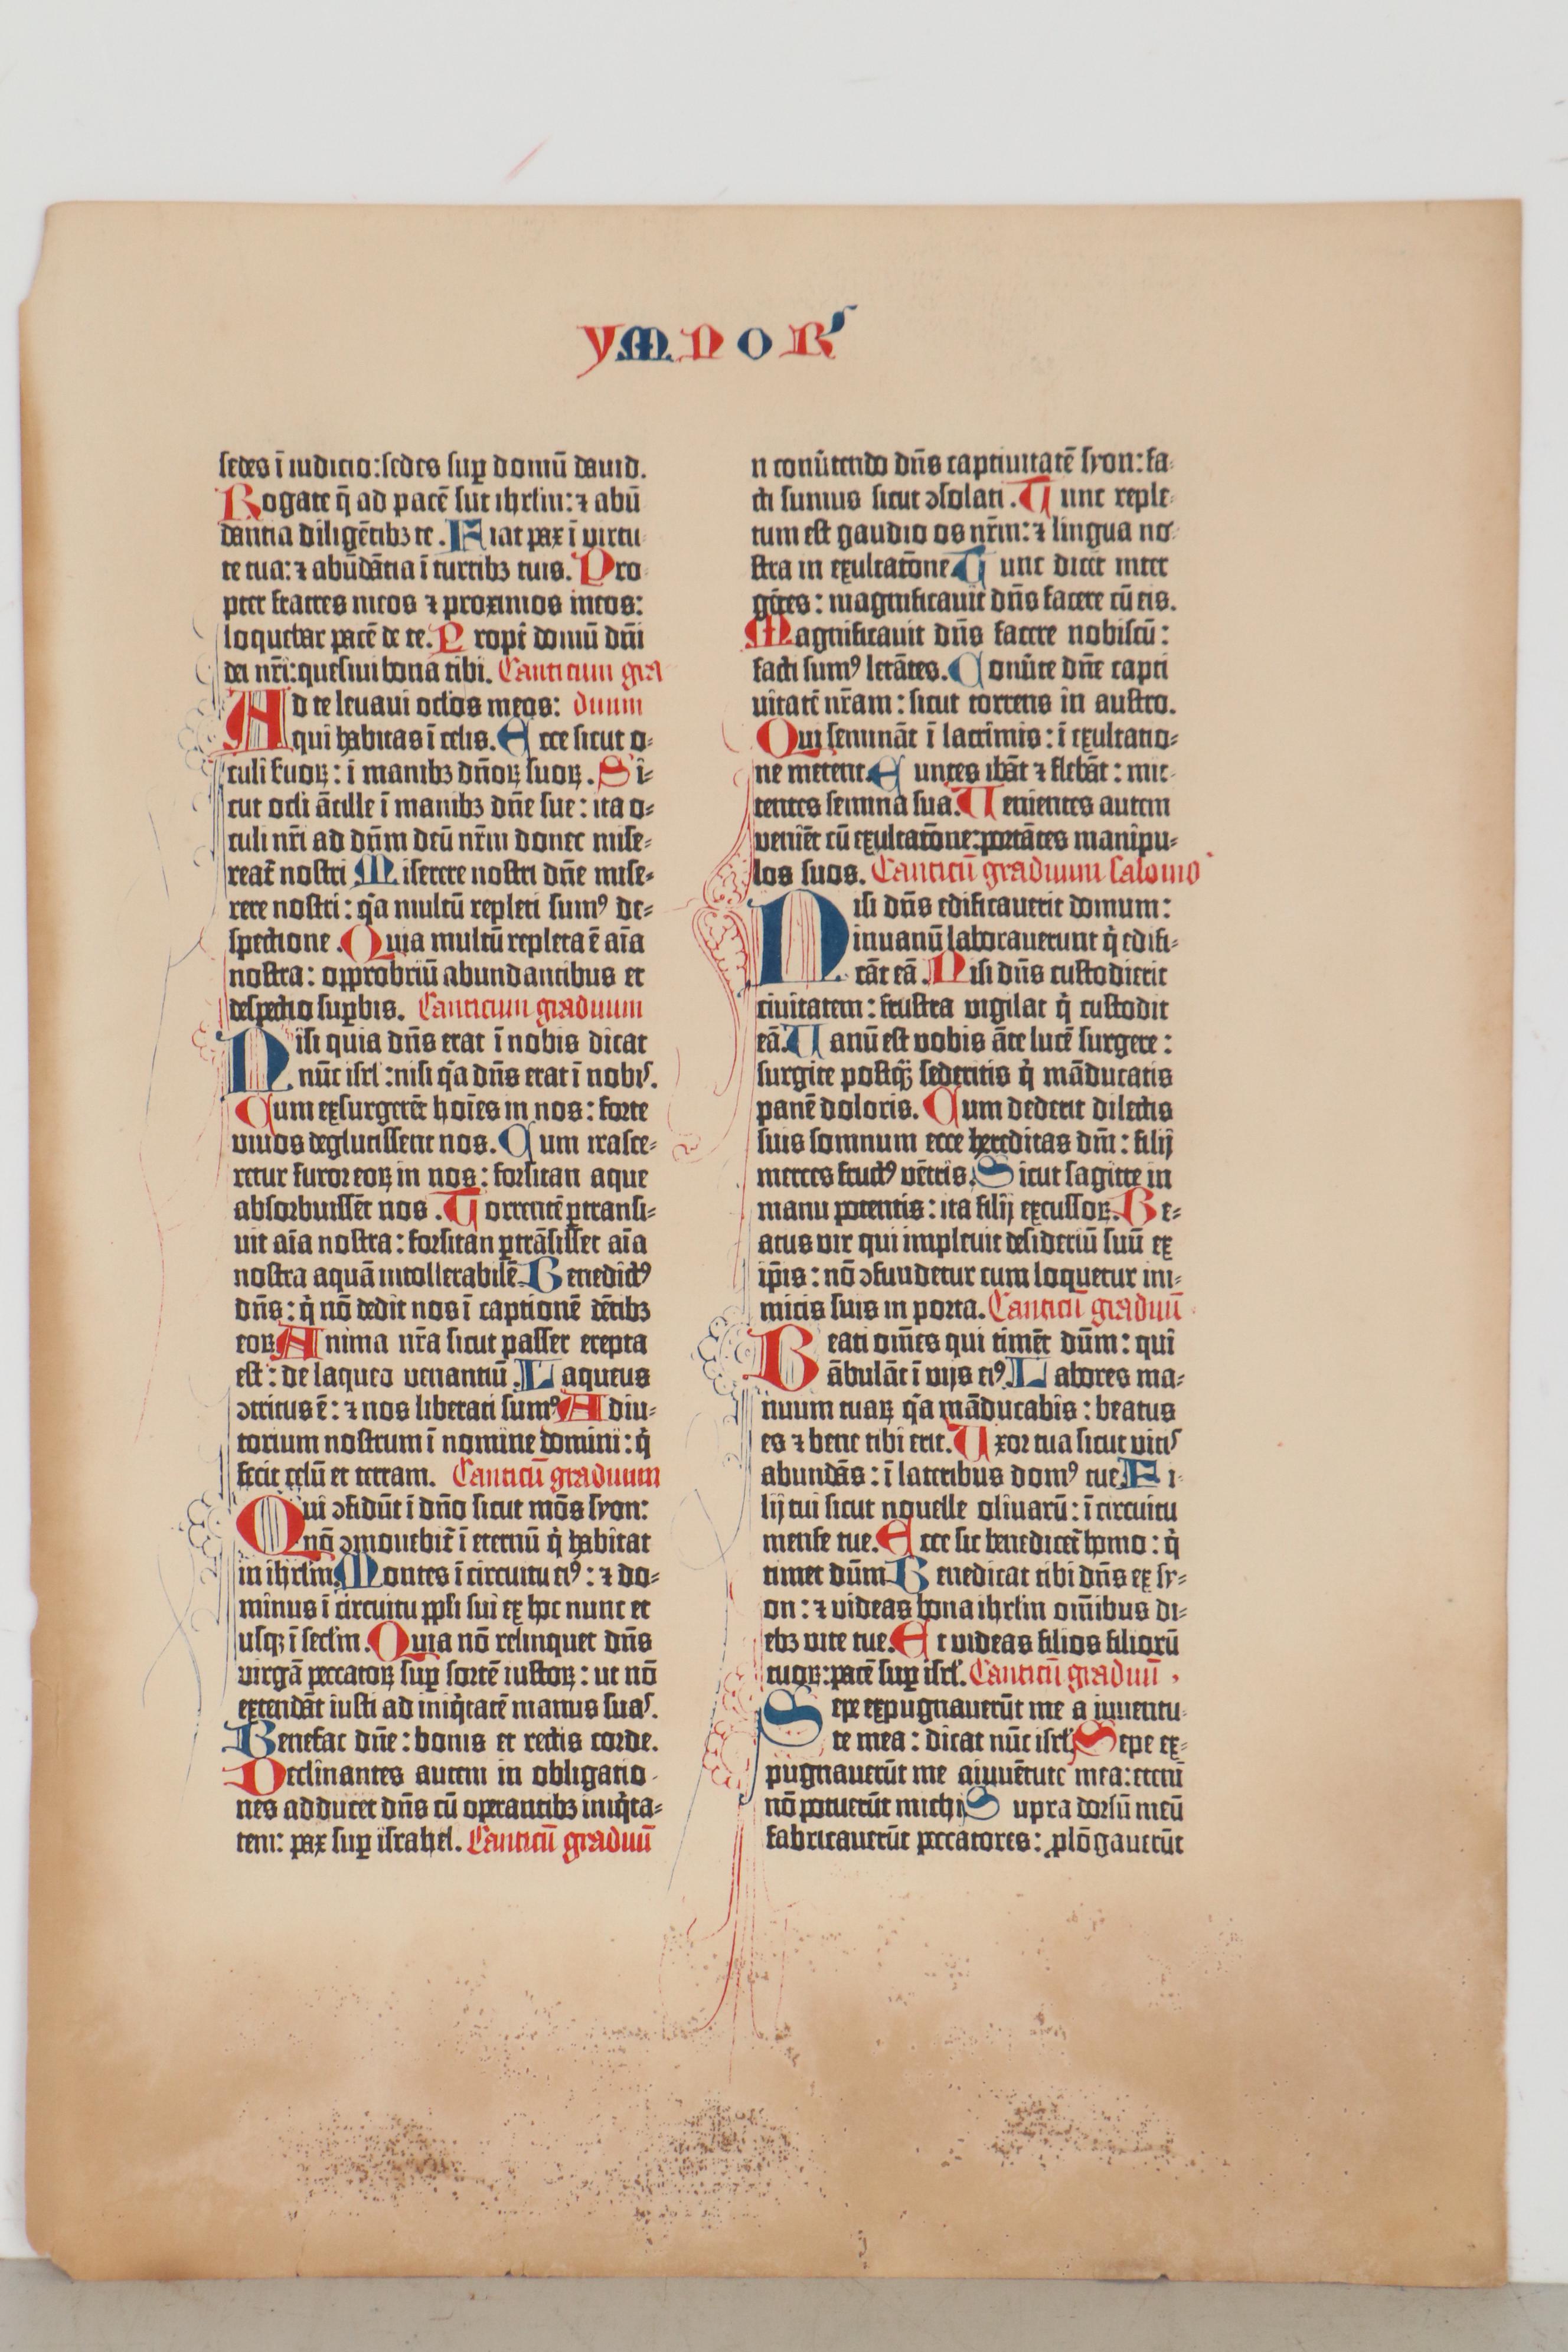 ymnoꝝ
sedes ī iudicio: sedes sup̲ domū dauid.
Rogate q̄ ad pacē sūt ihrlm̄: ⁊ abū
dantia diligētibꝫ te. Fiat pax ī virtu
te tua: ⁊ abūdātia ī turribꝫ tuis. Pro
pter fratres meos ⁊ proximos meos:
loquebar pacē de te. Propt̄ domū dn̄i
dei nr̄i: quesiui bona tibi. Canticum gra
Ad te leuaui oclos meos: duum
qui habitas ī celis. Ecce sicut o-
culi ẜuoꝝ: ī manibꝫ dn̄oꝝ suoꝝ. Si-
cut ocli ācille ī manibꝫ dn̄e sue: ita o-
culi nr̄i ad dn̄m deū nr̄m donec mise-
reat̄ nostri Miserere nostri dn̄e mise-
rere nostri: q̄a multū repleti sumꝰ de-
spectione. Quia multū repleta ē aīa
nostra: opprobriū abundantibus et
despectio sup̲bis. Canticum graduum
Nisi quia dn̄s erat ī nobis dicat
nūc isrl̄: nisi q̄a dn̄s erat ī nobis.
Cum exsurgerēt hoīes in nos: forte
viuos deglutissent nos. Cum irasce-
retur furor eoꝝ in nos: forsitan aque
absorbuissēt nos. Torrentē p̲transi-
uit aīa nostra: forsitan p̲trāsisset aīa
nostra aquā intollerabilē. Benedictꝰ
dn̄s: q̇ nō dedit nos ī captionē dētibꝫ
eoꝝ Anima nr̄a sicut passer erepta
est: de laqueo venantiū. Laqueus
ꝯtritus ē: ⁊ nos liberati sumꝰ Adiu-
torium nostrum ī nomine domini: q̇
fecit celū et terram. Canticū graduum
Qui ꝯfidūt ī dn̄o sicut mōs syon:
nō ꝯmouebit̄ ī eternū q̇ habitat
in ihrlm̄. Montes ī circuitu eiꝰ: ⁊ do-
minus ī circuitu ppl̄i sui ex hoc nunc et
usqꝫ ī seclm̄. Quia nō relinquet dn̄s
virgā peccatoꝝ sup̲ sortē iustoꝝ: ut nō
extendāt iusti ad iniq̇tatē manus suas.
Benefac dn̄e: bonis et rectis corde.
Declinantes autem in obligatio
nes adducet dn̄s cū operantibꝫ iniq̇ta-
tem: pax sup̲ israhel. Canticū graduū
n conūtendo dn̄s captiuitatē syon: fa-
cti sumus sicut ꝯsolati. Tunc reple-
tum est gaudio os nr̄m: ⁊ lingua no-
stra in exultatōne. Tunc dicēt inter
gētes: magnificauit dn̄s facere cū eis.
Magnificauit dn̄s facere nobiscū:
facti sumꝰ letātes. Conūte dn̄e capti
uitatē nr̄am: sicut torrens in austro.
Qui semināt ī lacrimis: ī exultatio-
ne metent. Euntes ibāt ⁊ flebāt: mit-
tentes semina sua. Venientes autem
veniēt cū exultatōne: portātes manipu-
los suos. Canticū graduum salomo
Nisi dn̄s edificauerit domum:
inuanū laborauerunt q̇ edifi-
cāt eā. Nisi dn̄s custodierit
ciuitatem: frustra vigilat q̇ custodit
eā. Vanū est vobis āte lucē surgere:
surgite postq̄ꝫ sederitis q̇ māducatis
panē doloris. Cum dederit dilectis
suis somnum ecce hereditas dn̄i: filij
merces fructꝰ vētris. Sicut sagitte in
manu potentis: ita filij excussoꝝ. Be-
atus vir qui impleuit desideriū suū ex
ip̄is: nō ꝯfundetur cum loquetur ini-
micis suis in porta. Canticū graduū
Beati om̄es qui timēt dn̄m: qui
ābulāt ī vijs eiꝰ. Labores ma-
nuum tuaꝝ q̄a māducabis: beatus
es ⁊ bene tibi erit. Uxor tua sicut vitis
abundās: ī lateribus domꝰ tue. Fi-
lij tui sicut nouelle oliuarū: ī circuitu
mense tue. Ecce sic benedicet̄ homo: q̇
timet dn̄m Benedicat tibi dn̄s ex sy-
on: ⁊ videas bona ihrlm̄ om̄ibus di-
ebꝫ vite tue. Et videas filios filiorū
tuoꝝ: pacē sup̲ isrl̄. Canticū graduū
Sepe expugnauerūt me a iuuentu
te mea: dicat nūc isrl̄. Sepe ex-
pugnauerūt me aiuuētute mea: etenī
nō potuerūt michi Supra dorsū meū
fabricauerūt peccatores: ꝓlōgauerūt